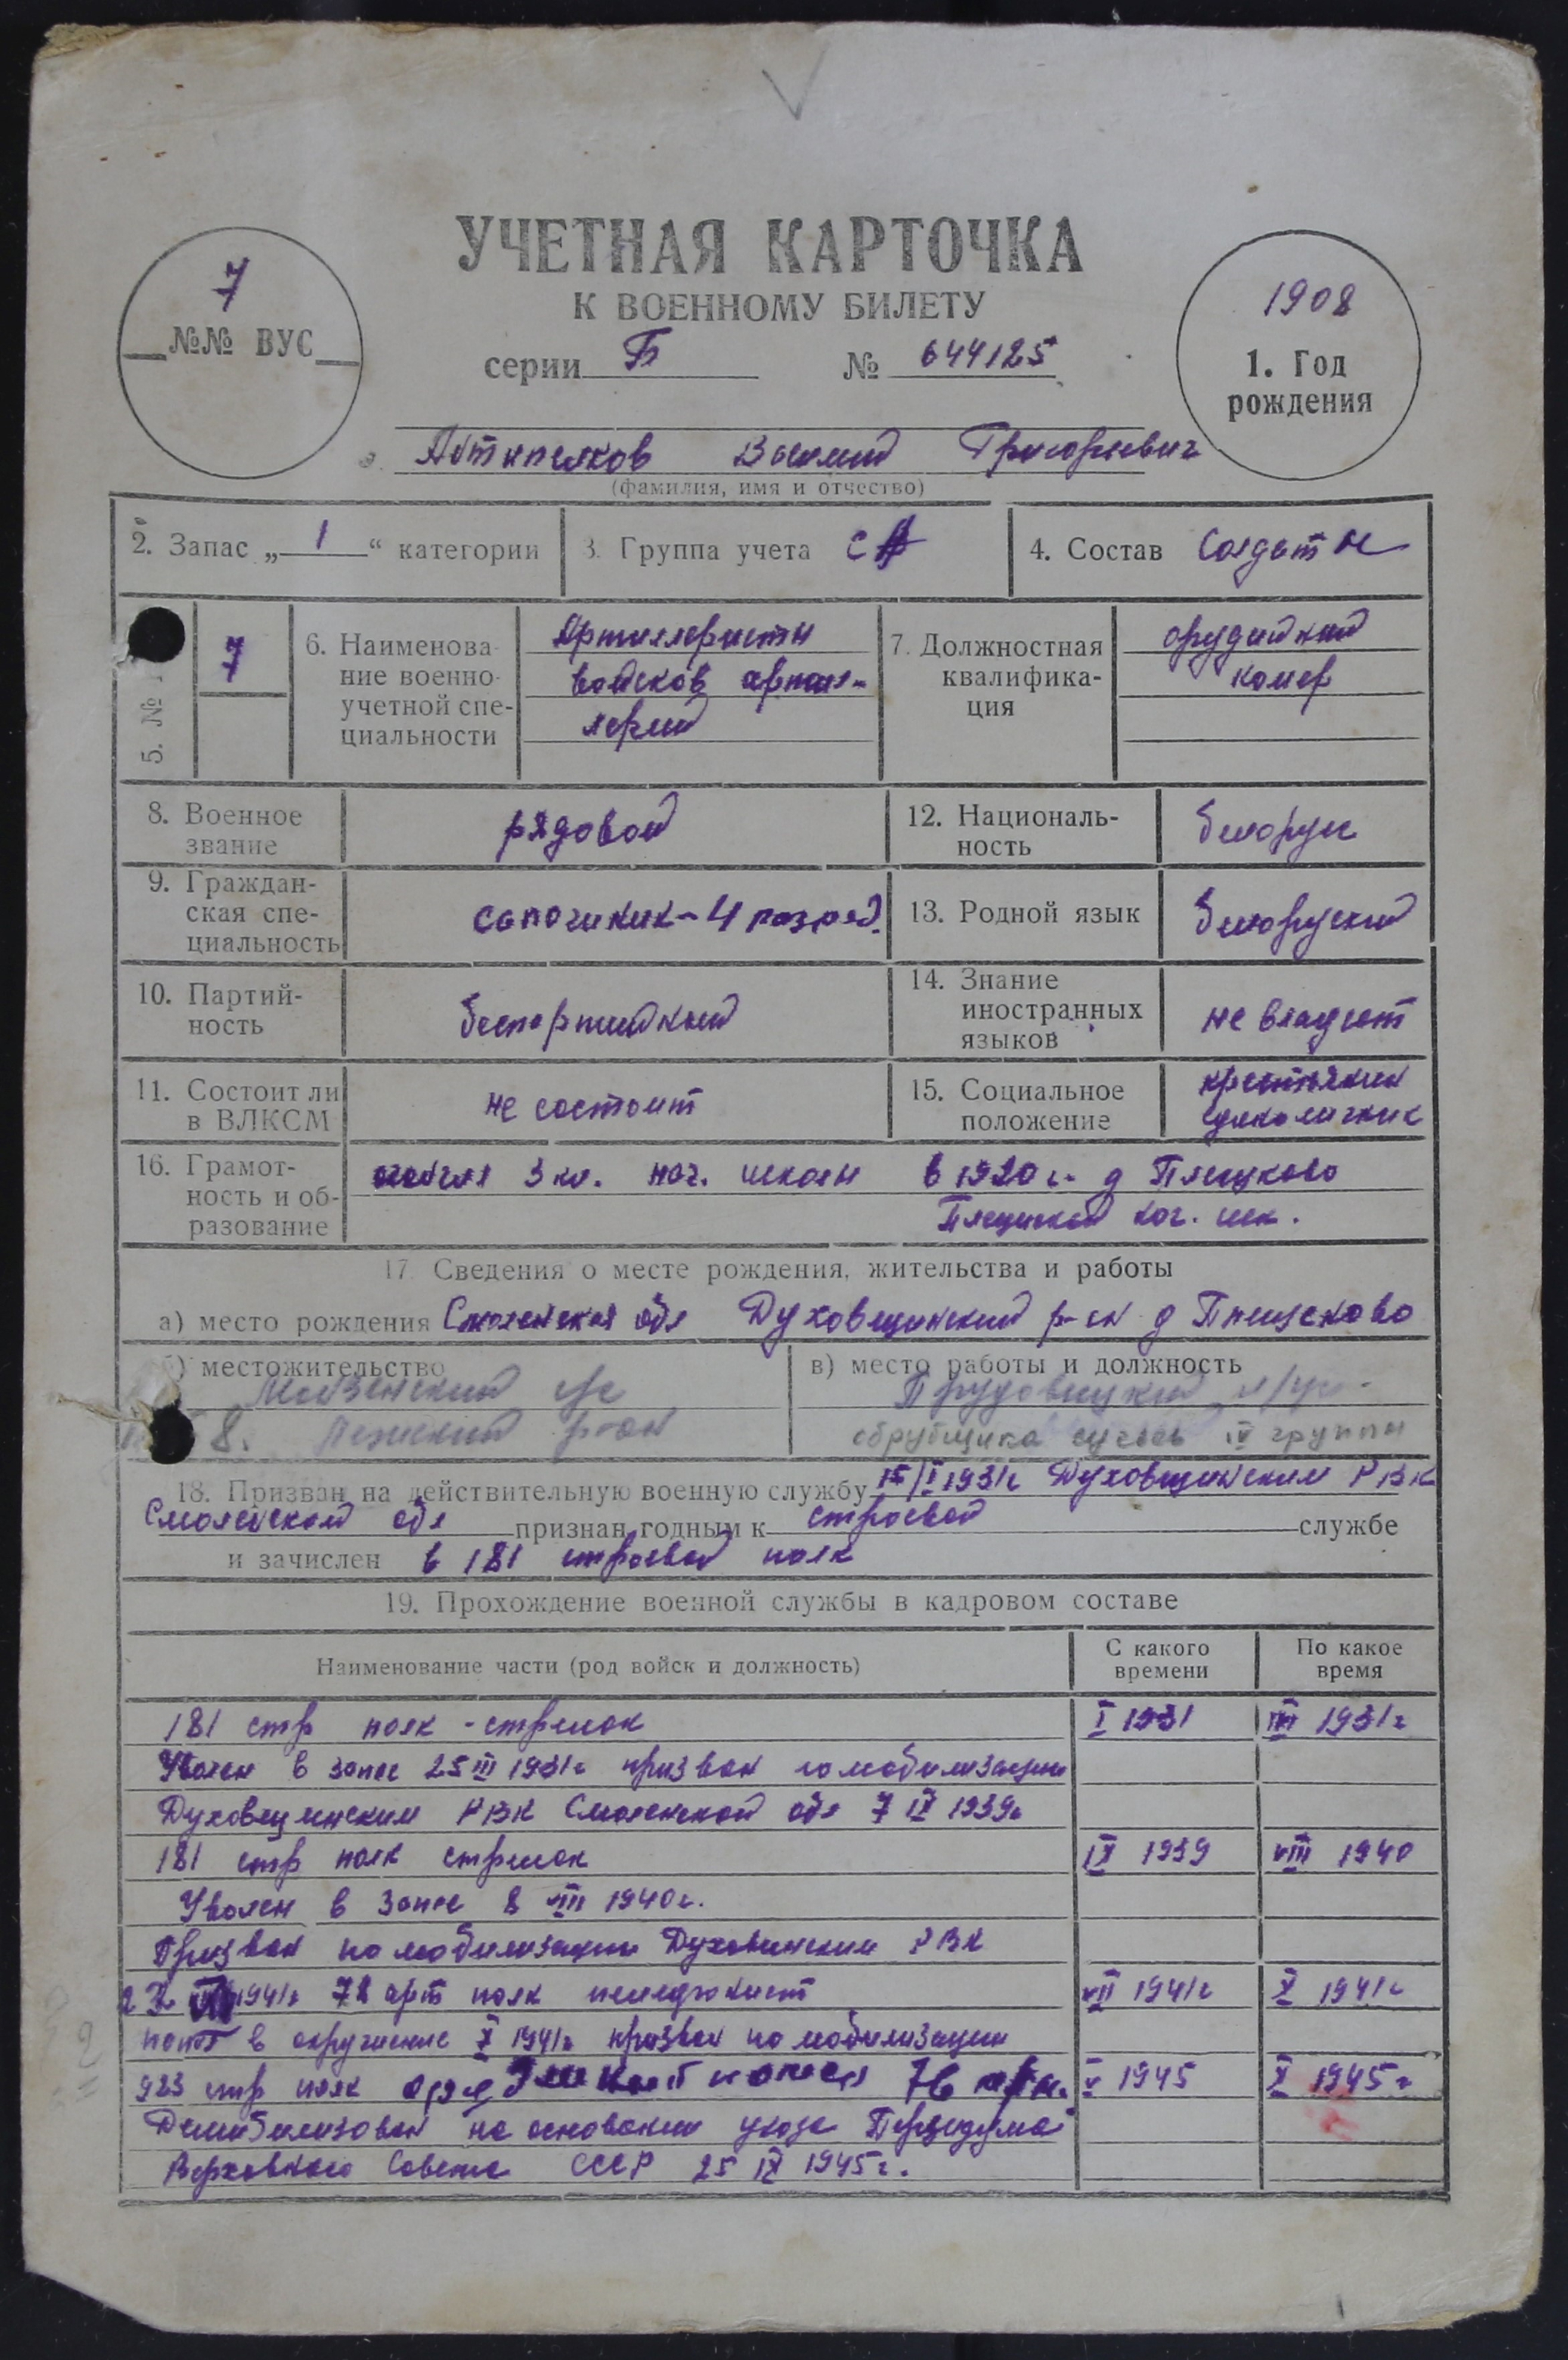 УЧЕТНАЯ КАРТОЧКА
К ВОЕННОМУ БИЛЕТУ
серии Б № 644125
7
№№ ВУС
1908
1. Год
рождения
Григорьевич
(фамилия, имя и отчество)
2. Запас „ 1 “ категории
3. Группа учета СА
4. Состав Солдаты
5. №
7
6. Наименова-
ние военно-
учетной спе-
циальности
Артиллеристы
войсков артил-
лерий
7. Должностная
квалифика-
ция
орудийный
номер
8. Военное
звание
рядовой
12. Националь-
ность
белорус
9. Граждан-
ская спе-
циальность
сапожник - 4 разряд.
13. Родной язык
белоруский
10. Партий-
ность
беспартийный
14. Знание
иностранных
языков
не владеет
11. Состоит ли
в ВЛКСМ
не состоит
15. Социальное
положение
крестьянин
единоличник
16. Грамот-
ность и об-
разование
3 кл. нач. школы в 1920 г. д
нач. шк.
17. Сведения о месте рождения, жительства и работы
а) место рождения Смоленская обл Духовщинский р-он д
б) местожительство
8. р-он
в) место работы и должность
обрубщика сучьев IV группы
18. Призван на действительную военную службу 1931г Духовщинским РВК
Смоленской обл признан годным к строевой службе
и зачислен в 181 строевой полк
19. Прохождение военной службы в кадровом составе
Наименование части (род войск и должность)
С какого
времени
По какое
время
181 стр полк - стрелок I 1931 III 1931г
Уволен в запас 25 III 1931г призван по мобилизации
Духовщинским РВК Смоленской обл 7 IX 1939г
181 стр полк стрелок IX 1939 VIII 1940
Уволен в запас 8 VIII 1940г.
Призван по мобилизации РВК
1941г 72 арт полк VII 1941г X 1941г
попал в окружение X 1941г призван по мобилизации
923 стр полк номер 76 V 1945 X 1945г
на основании указа
Верховного Совета СССР 25 IX 1945г.